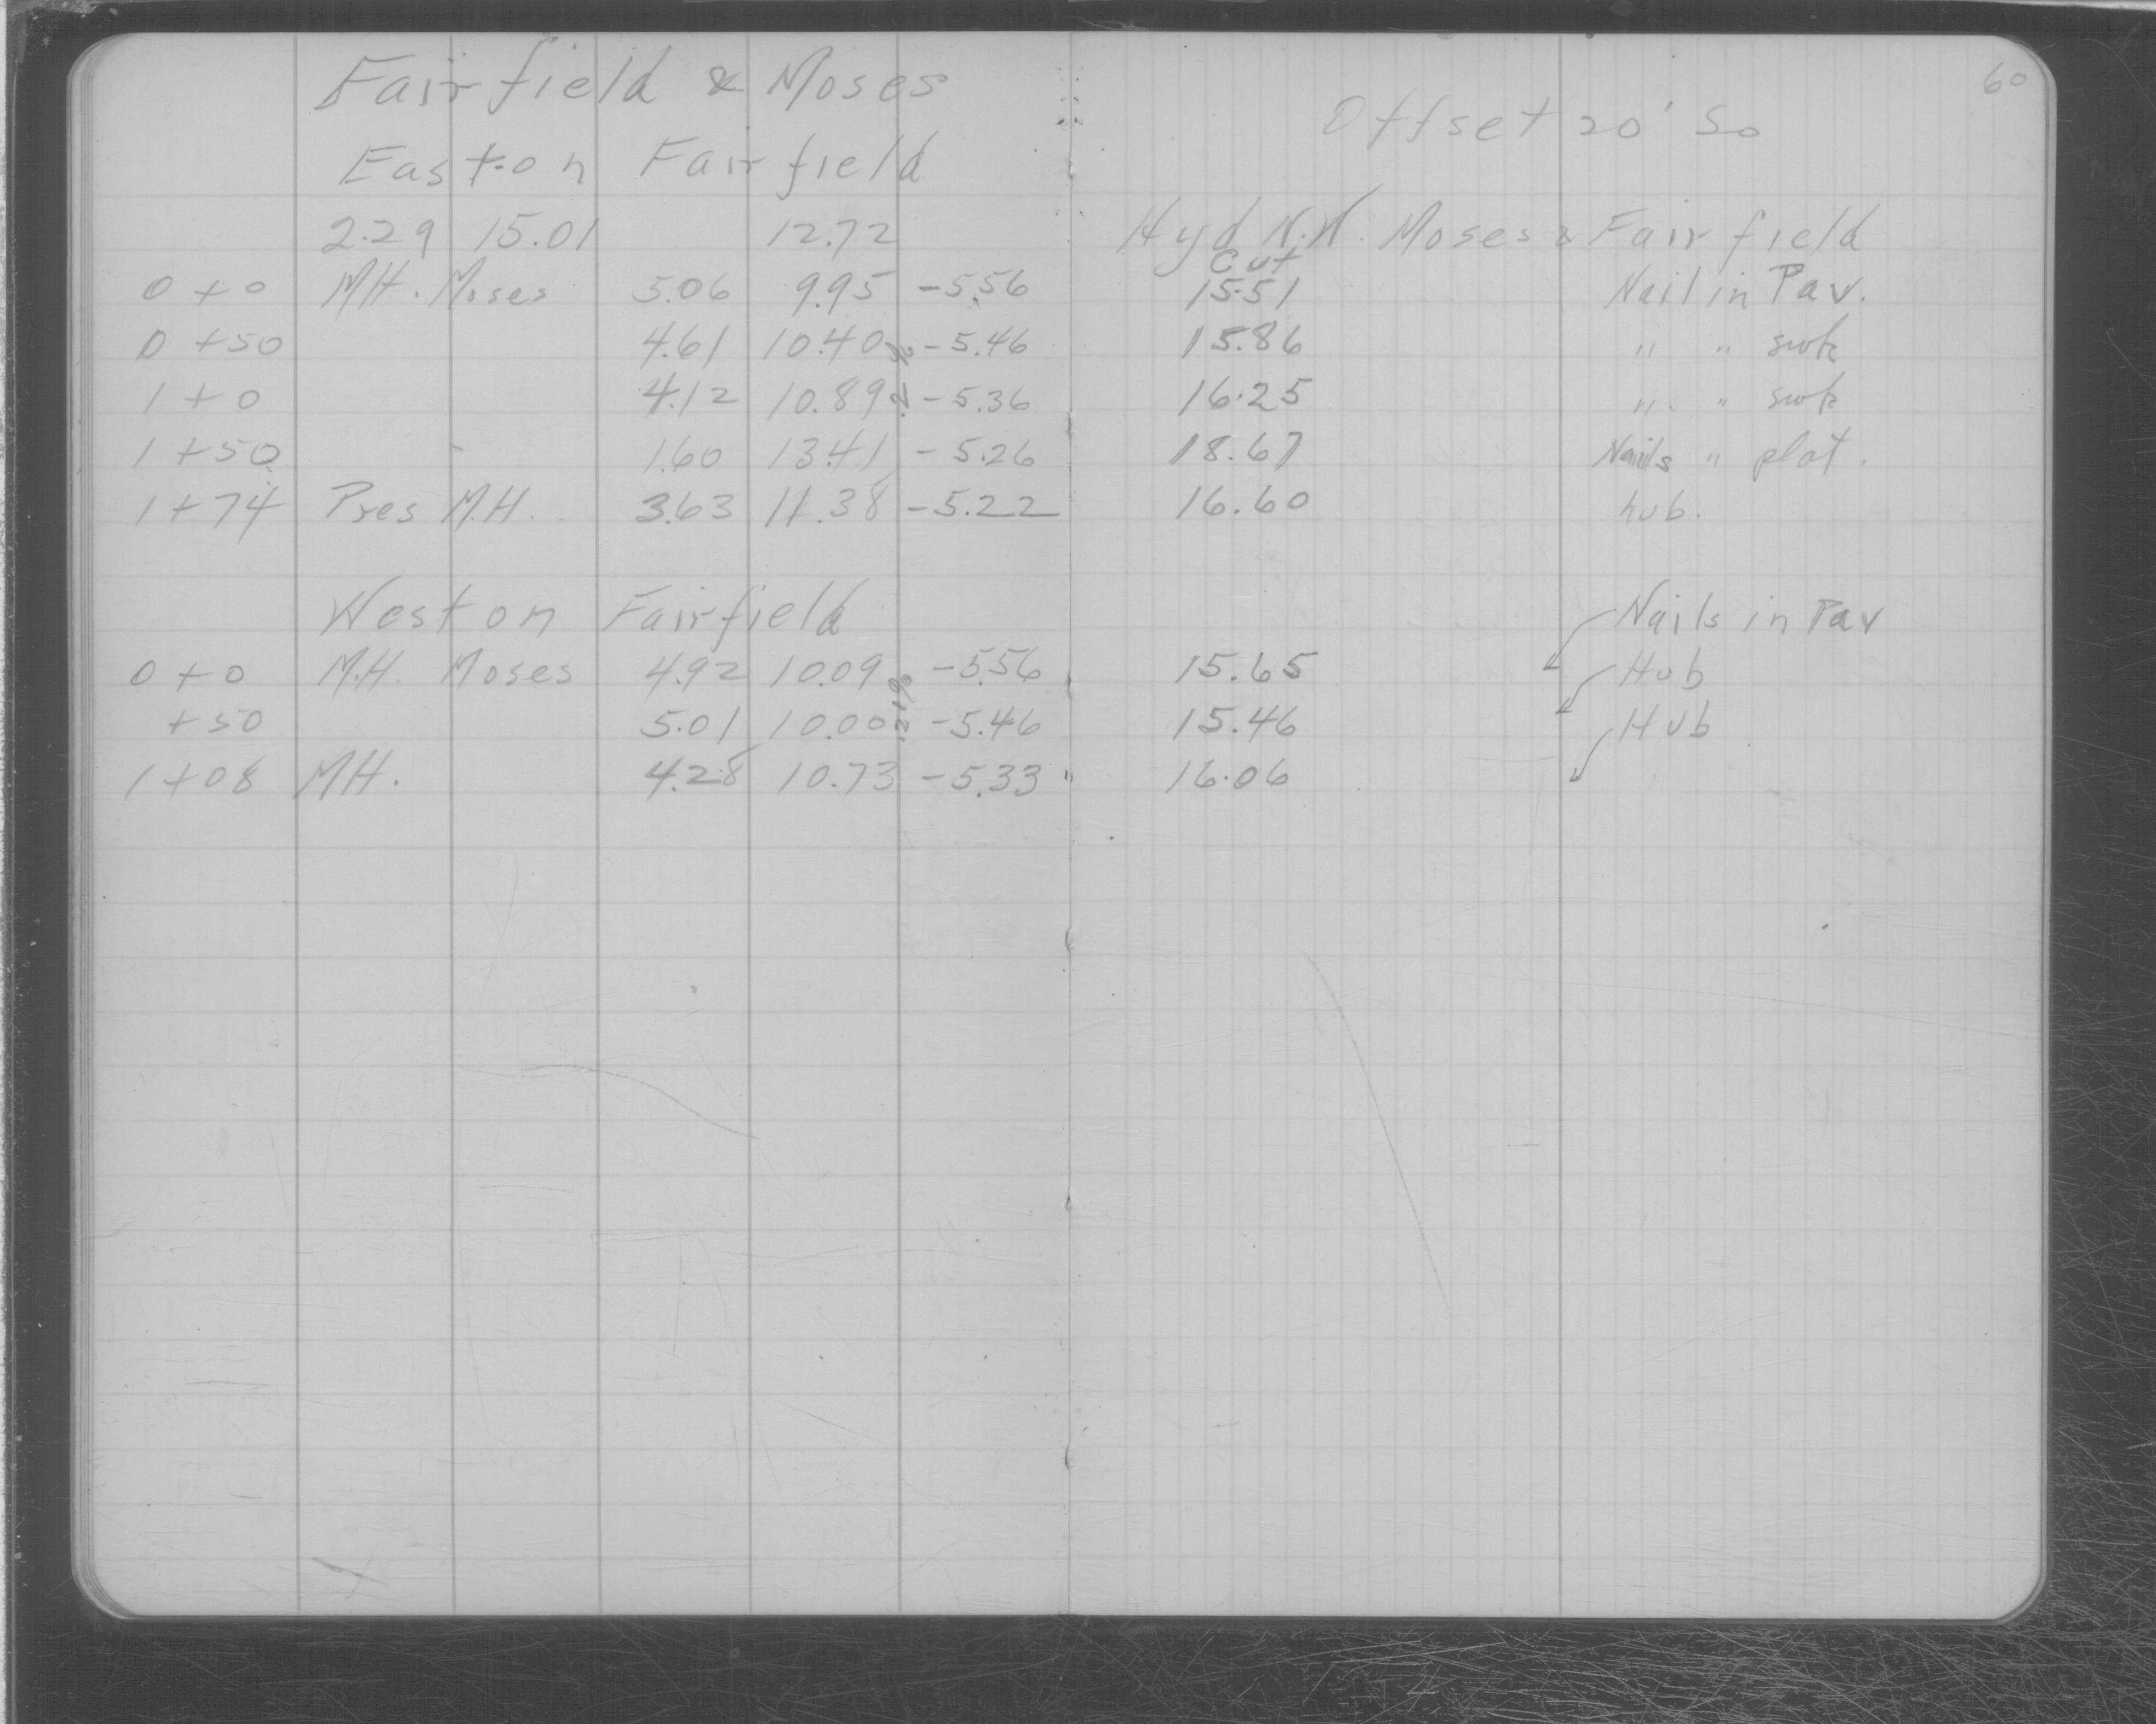 60
Fairfield & Moses
Offset 20' So
East on Fairfield
2.29 15.01 12.72 Hyd N.W. Moses & Fairfield
Cut
0+0 MH. Moses 5.06 9.95 -5.56 15.51 Nail in Pav.
0+50 4.61 10.40 -5.46 15.86 " " swk
.2%
1+0 4.12 10.89 -5.36 16.25 " " swk
1+50 1.60 13.41 -5.26 18.67 Nails " plat.
1+74 Pres M.H. 3.63 11.38 -5.22 16.60 hub.
West on Fairfield Nails in Pav
0+0 M.H. Moses 4.92 10.09 -5.56 15.65 Hub
+50 5.01 10.00 -5.46 15.46 Hub
.21%
1+08 MH. 4.28 10.73 -5.33 16.06